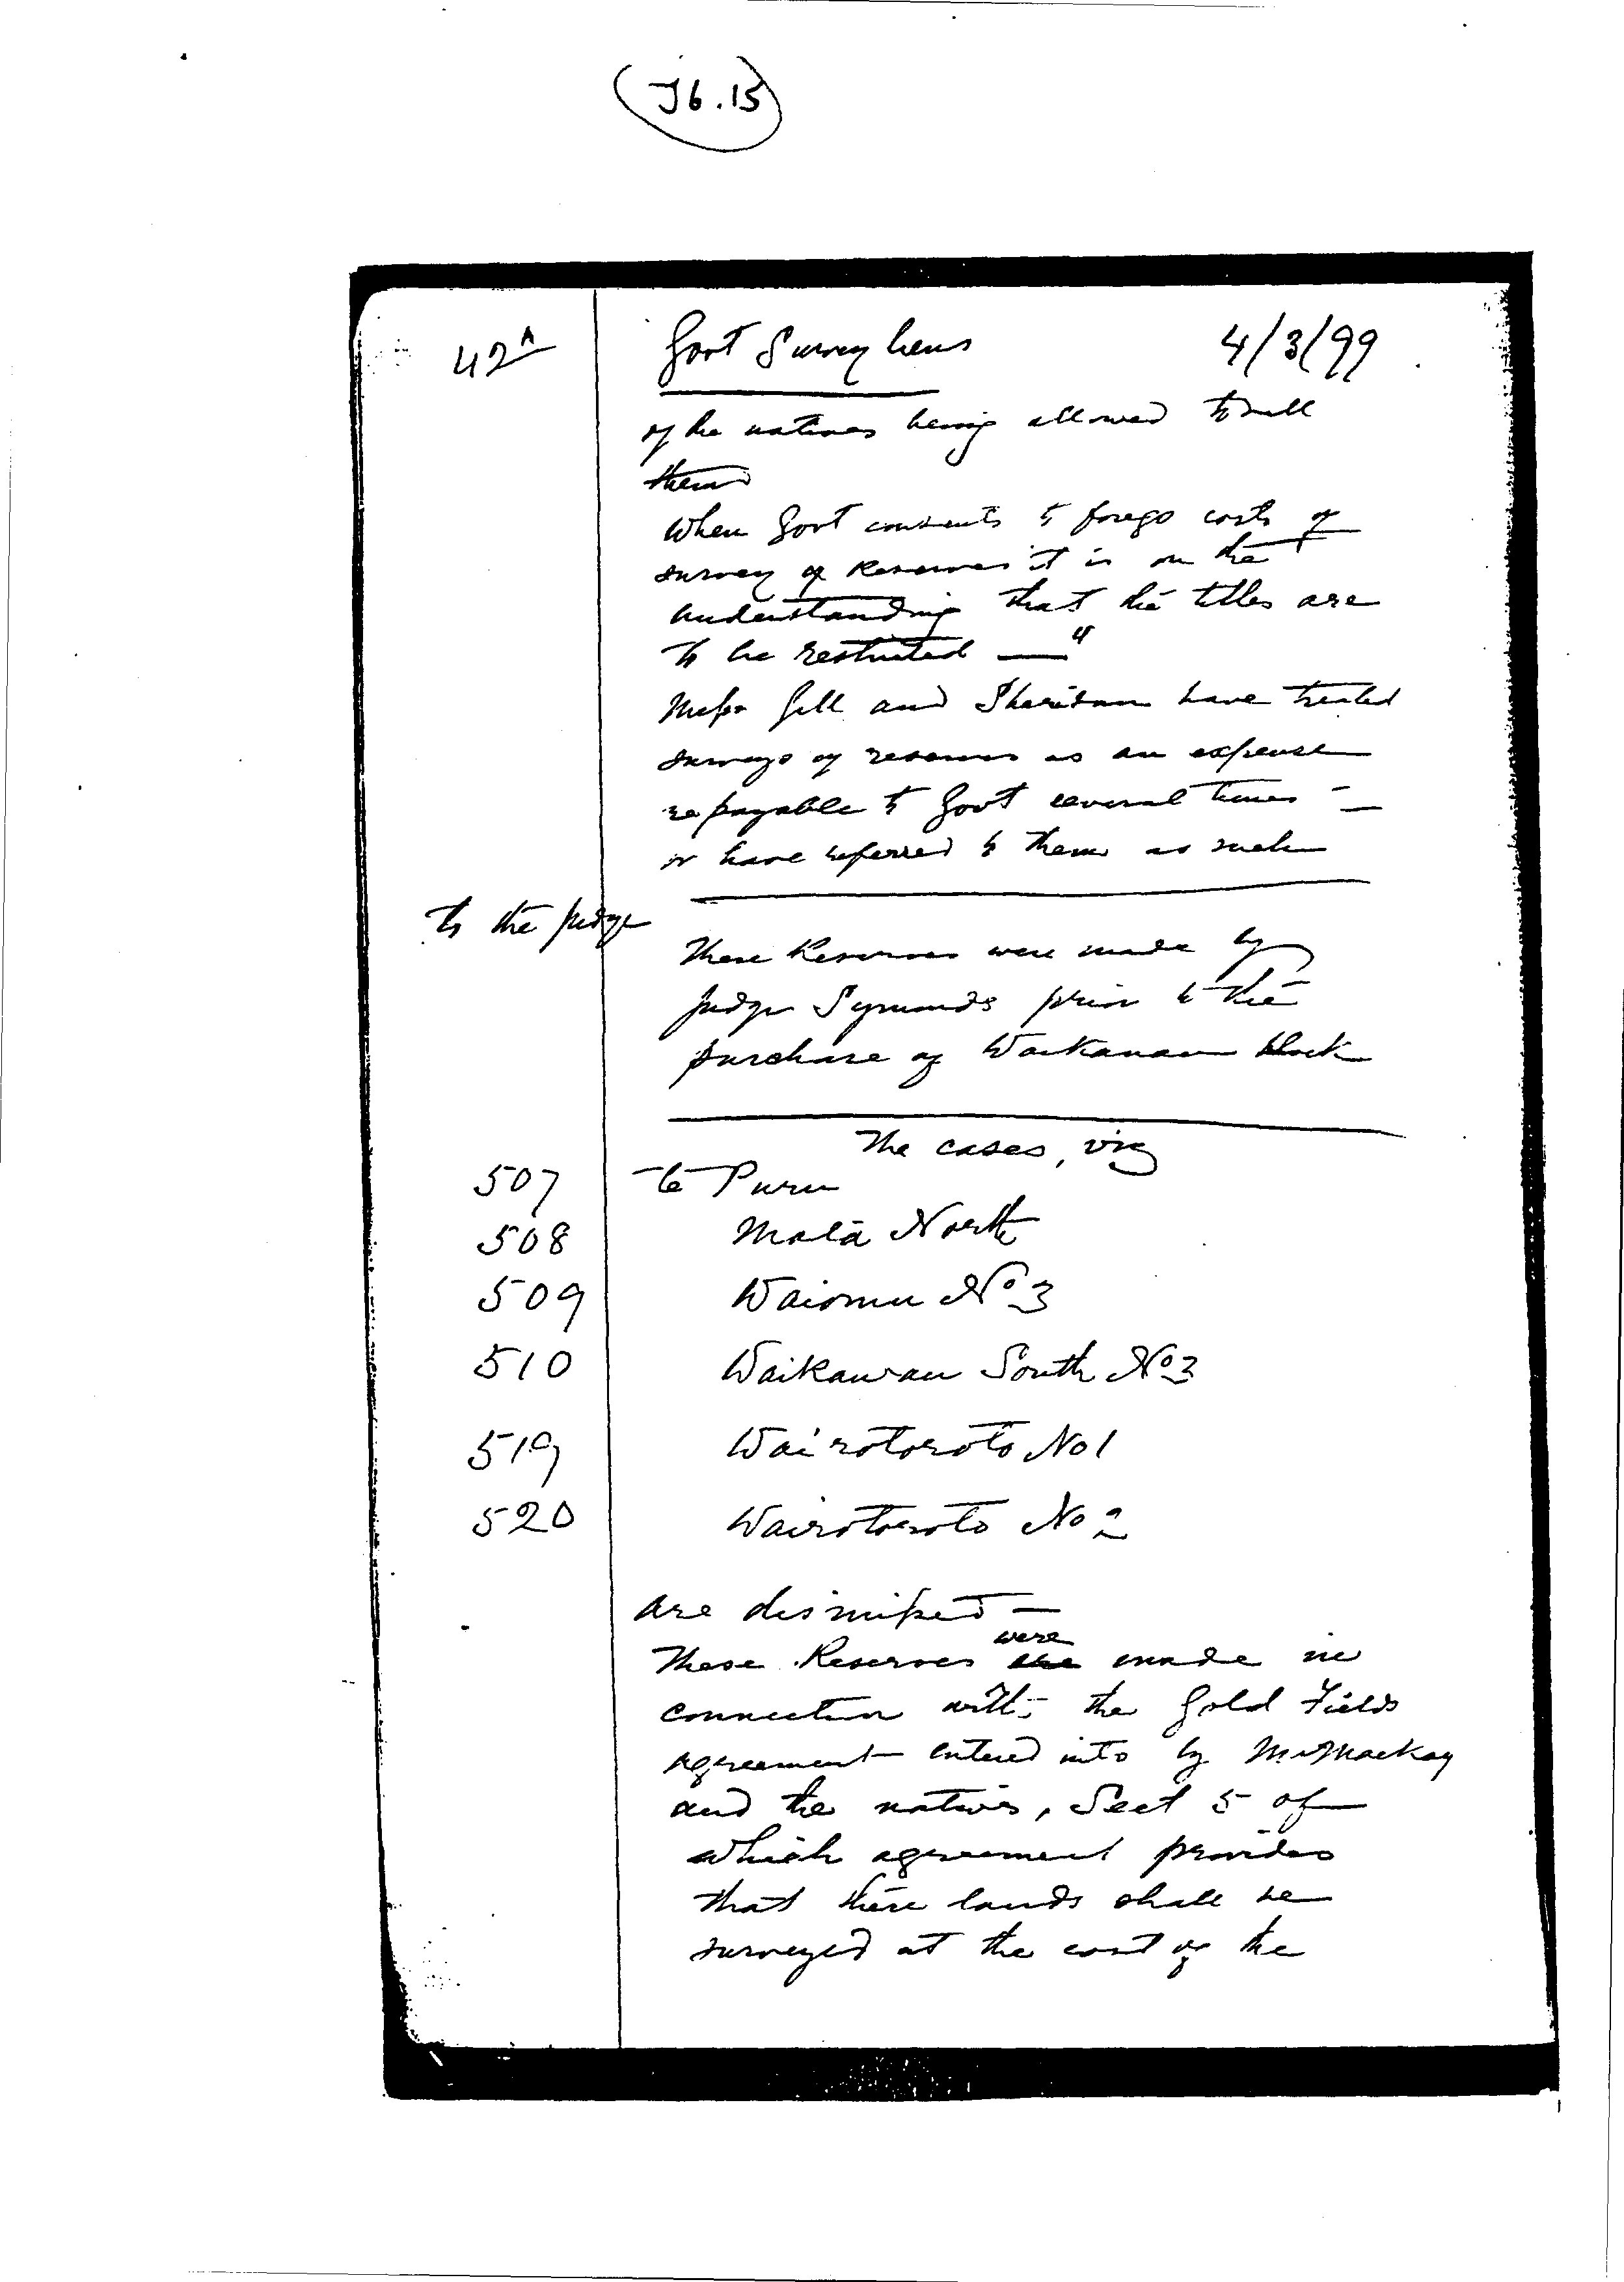 (J6.15)
42A Govt Survey liens 4/3/99
of the natives being allowed to sell
them
When Govt consents to forego costs of
survey of Reserves it is on the
understanding that the titles are
to be restricted —"
Messrs Gill and Sheridan have treated
surveys of reserves as an expense
repayable to Govt several times —
or have referred to them as such
To the Judge
These Reserves were made by
Judge Symonds prior to the
purchase of Waikawau block
The cases, viz
507 Te Puru
508 Mata North
509 Waiomu No 3
510 Waikawau South No 3
519 Wairotoroto No 1
520 Wairotoroto No 2
are dismissed —
were
These Reserves are made in
connection with the Gold Fields
agreement entered into by Mr Mackay
and the natives, Sect 5 of
which agreement provides
that these lands shall be
surveyed at the cost of the